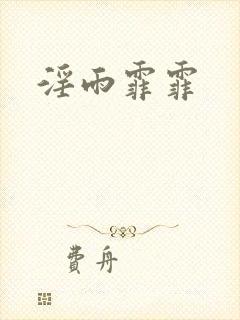 淫雨霏霏
費舟